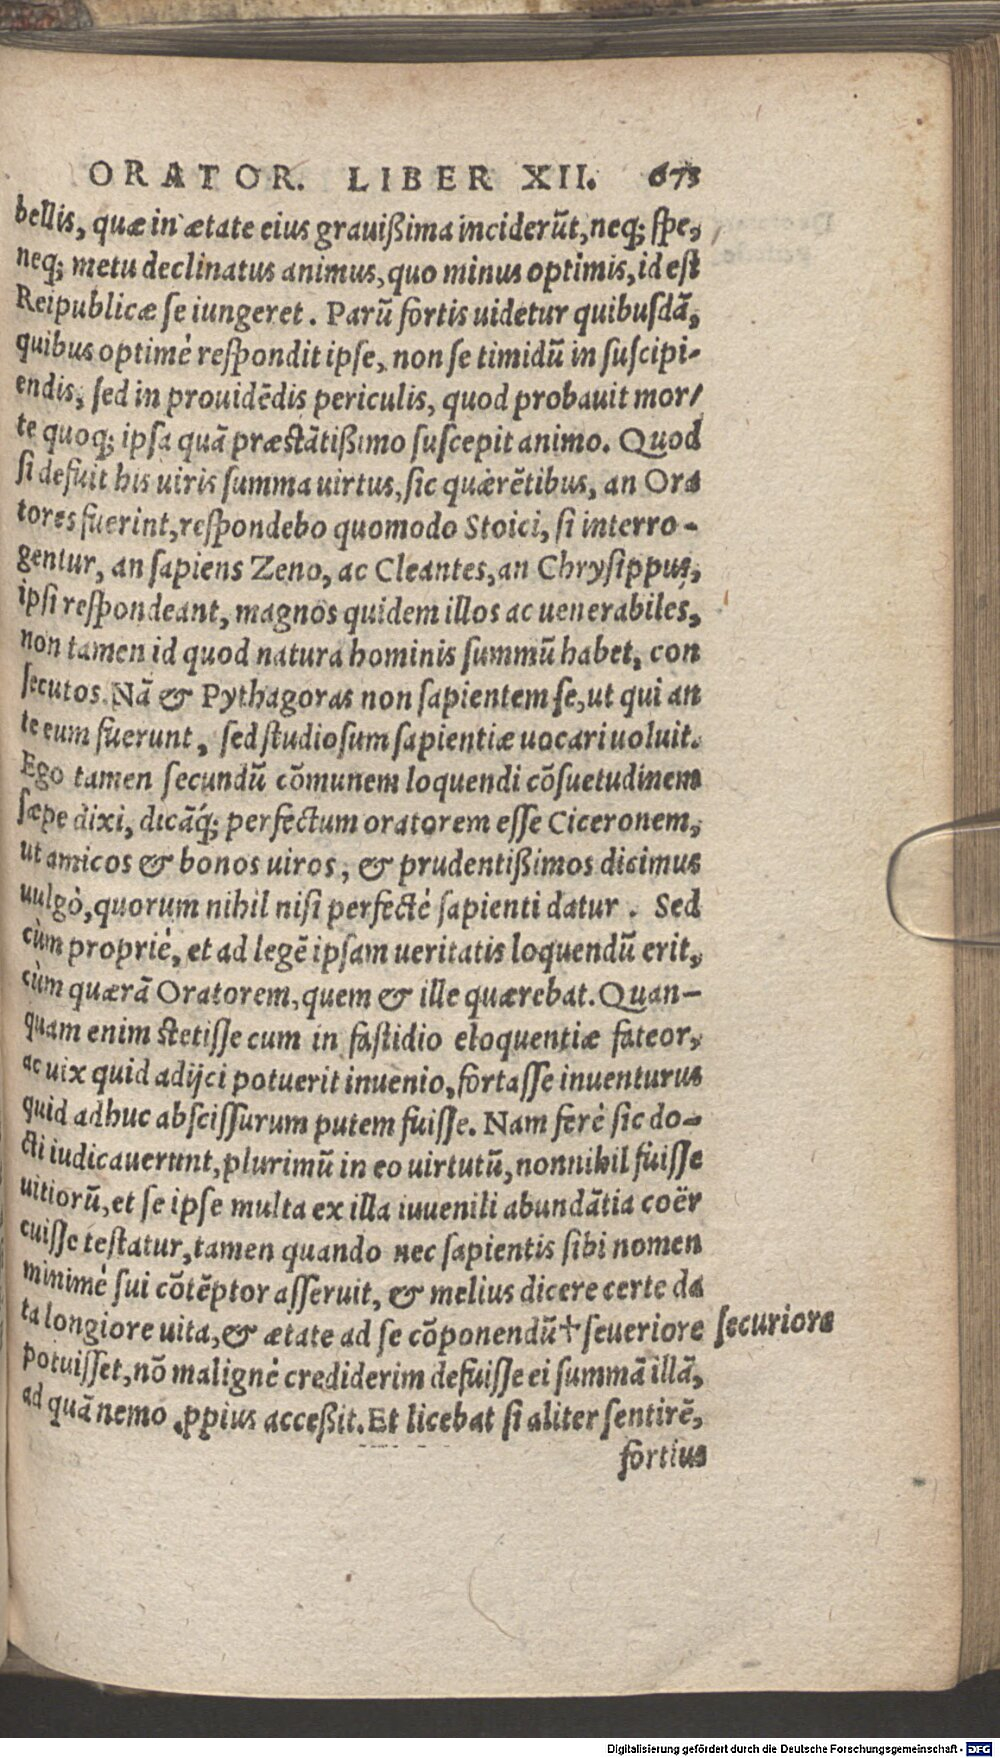 ORATOR. LIBER XII. 673
bellis, quæ in ætate eius grauißima inciderūt, neq; ſpe,
neq; metu declinatus animus, quo minus optimis, id eſt
Reipublicæ ſe iungeret. Parū fortis uidetur quibuſdã,
quibus optimè reſpondit ipſe, non ſe timidū in ſuſcipi-
endis, ſed in prouidēdis periculis, quod probauit mor/
te quoq; ipſa quā præſtātißimo ſuſcepit animo. Quod
ſi defuit his uiris ſumma uirtus, ſic quærētibus, an Ora
tores fuerint, reſpondebo quomodo Stoici, ſi interro-
gentur, an ſapiens Zeno, ac Cleantes, an Chryſippus,
ipſi reſpondeant, magnos quidem illos ac uenerabiles,
non tamen id quod natura hominis ſummū habet, con
ſecutos. Nã & Pythagoras non ſapientem ſe, ut qui an
te eum fuerunt, ſed ſtudioſum ſapientiæ uocari uoluit.
Ego tamen ſecundū cōmunem loquendi cōſuetudinem
ſæpe dixi, dicãq́; perfectum oratorem eſſe Ciceronem,
ut amicos & bonos uiros, & prudentißimos dicimus
uulgò, quorum nihil niſi perfectè ſapienti datur. Sed
cùm propriè, et ad legē ipſam ueritatis loquendū erit,
cùm quæram Oratorem, quem & ille quærebat. Quan-
quam enim ſtetiſſe cum in faſtidio eloquentiæ fateor,
ac uix quid adijci potuerit inuenio, fortaſſe inuenturus
quid adhuc abſciſſurum putem fuiſſe. Nam ferè ſic do-
cti iudicauerunt, plurimū in eo uirtutū, nonnihil fuiſſe
uitiorū, et ſe ipſe multa ex illa iuuenili abundātia coër
cuiſſe teſtatur, tamen quando nec ſapientis ſibi nomen
minimè ſui cōtēptor aſſeruit, & melius dicere certe da
ta longiore uita, & ætate ad ſe cōponendū† ſeueriore ſecuriore
potuiſſet, nō malignè crediderim defuiſſe ei ſummã illã,
ad quã nemo ꝓpius acceßit. Et licebat ſi aliter ſentirē,
fortius
Digitalisierung gefördert durch die Deutsche Forschungsgemeinschaft - DFG